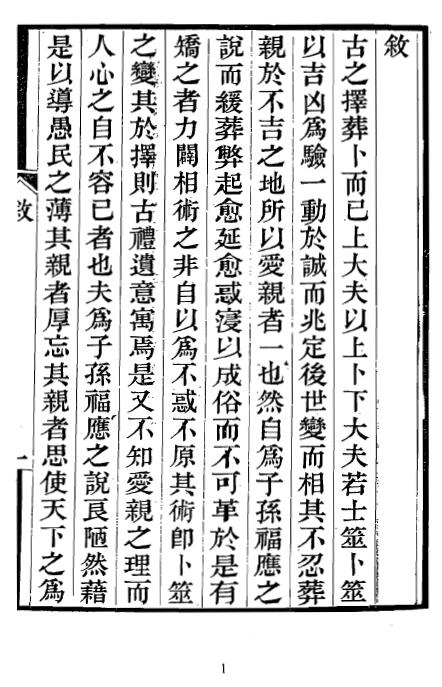 敘
古之擇葬卜而已上大夫以上卜下大夫若士筮卜筮
以吉凶爲驗一動於誠而兆定後世變而相其不忍葬
親於不吉之地所以愛親者一也然自爲子孫福應之
說而緩葬弊起愈延愈惑寖以成俗而不可革於是有
矯之者力闢相術之非自以爲不惑不原其術卽卜筮
之變其於擇則古禮遺意寓焉是又不知愛親之理而
人心之自不容已者也夫爲子孫福應之說良陋然藉
是以導愚民之薄其親者厚忘其親者思使天下之爲
敘
一
1